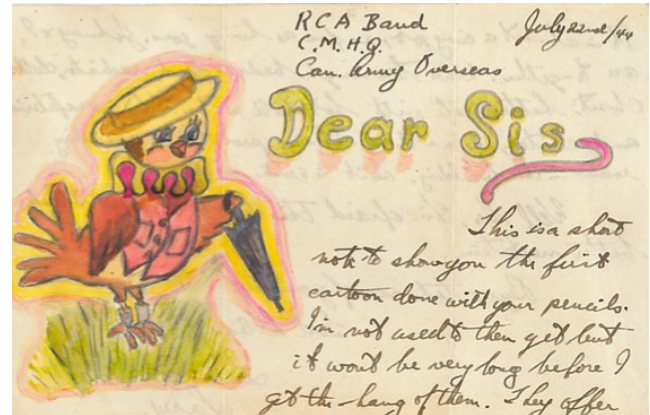 RCA Band
C.M.H.Q.
Can. Army Overseas
July 22nd/44
Dear Sis
This is a short
note to show you the first
cartoon done with your pencils.
I'm not used to them yet but
it wont be very long before I
get the hang of them. They offer